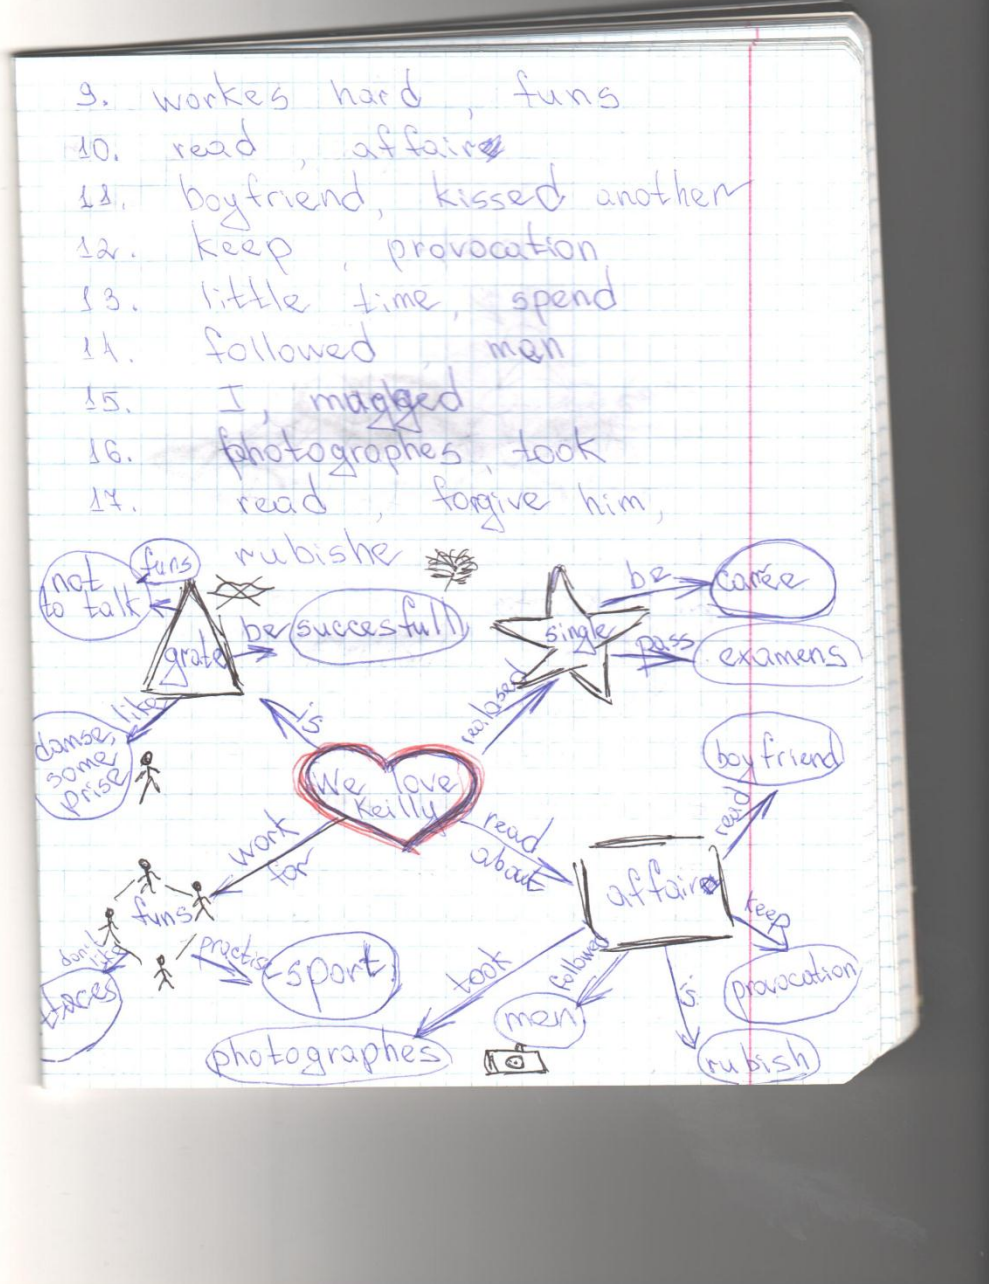 9. workes hard, funs
10. read, affair
11. boyfriend, kissed another
12. keep, provocation
13. little time, spend
14. followed, man
15. I, magged
16. photographes, took
17. read, forgive him,
rubishe
funs
not
to talk
grate
be succesfull
like
damse,
some
prise
is
single
be
carée
pass
examens
realased
We love
Keilly
work
for
read
about
funs
don't
like
practise
sport
affair
read
boyfriend
keep
provocation
is
rubish
followed
men
took
photographes